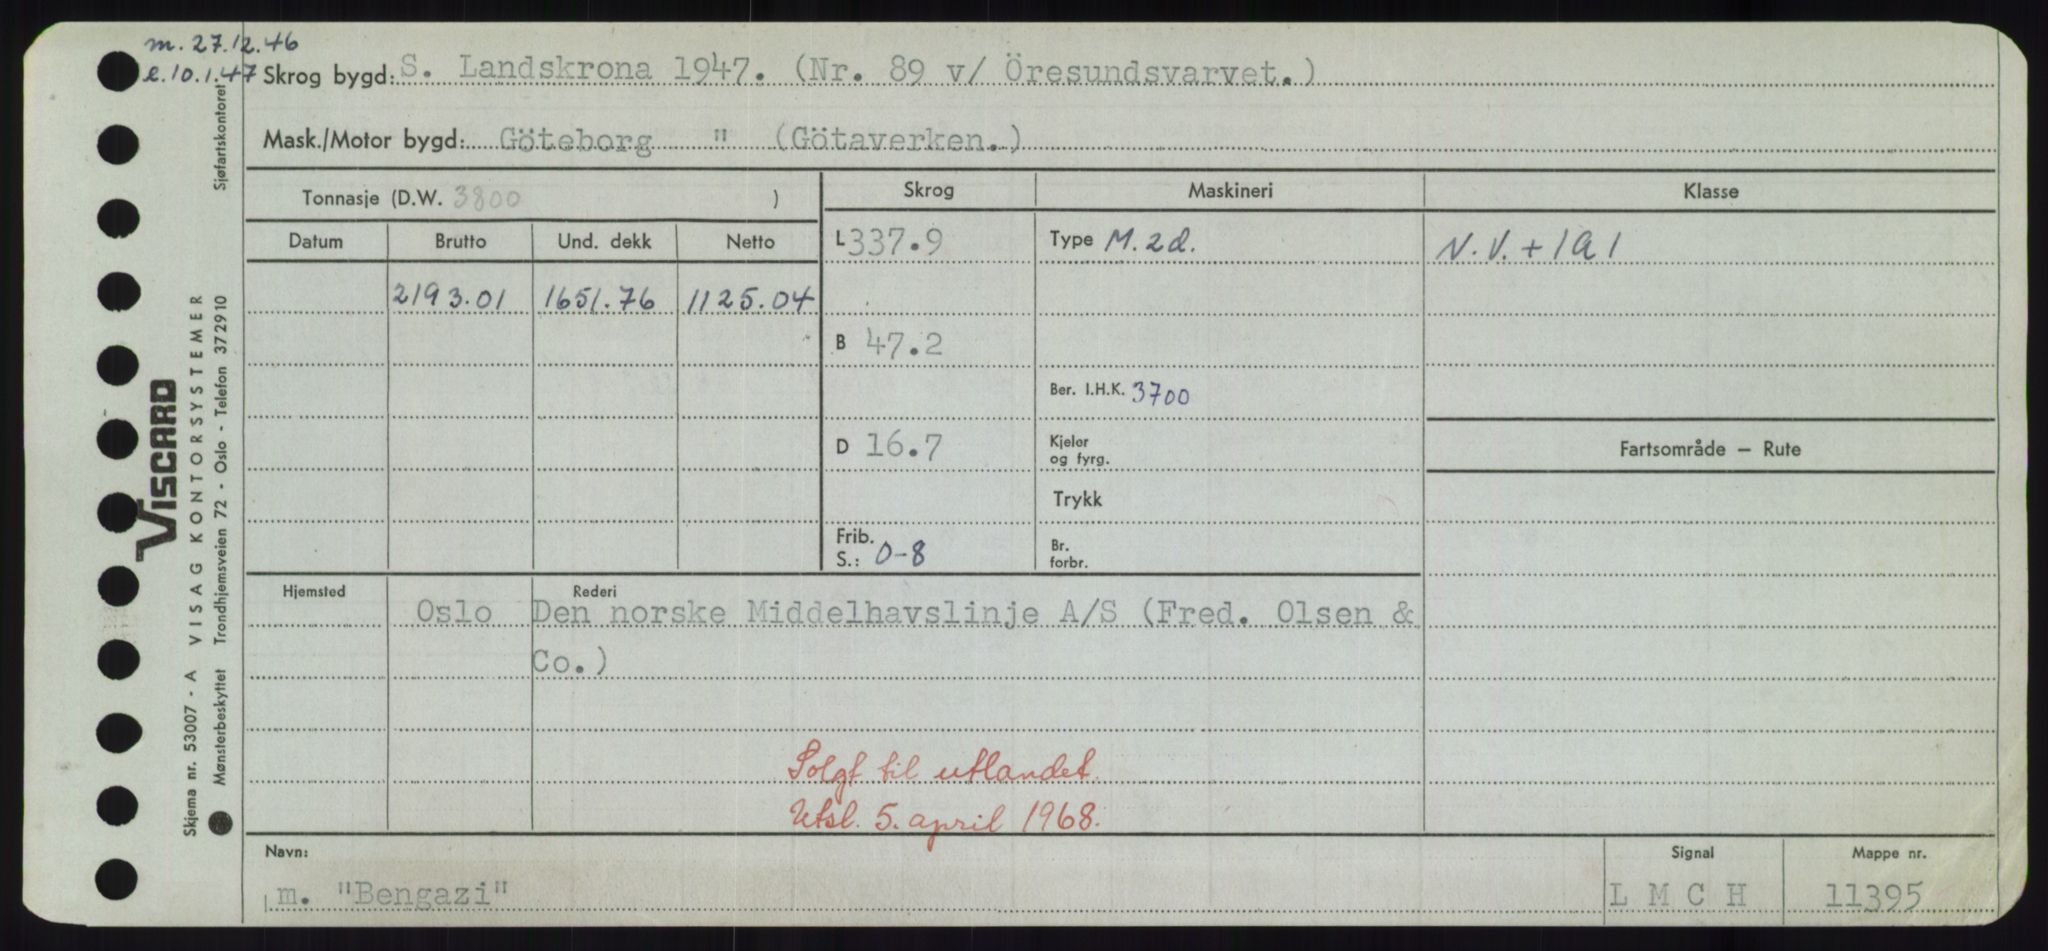 m. 27.12.46
e. 10.1.47
Skrog bygd: S. Landskrona 1947. (Nr. 89 v/ Öresundsvarvet.)
Mask./Motor bygd: Göteborg " (Götaverken.)
Tonnasje (D.W. 3800 )
Skrog
Maskineri
Klasse
Datum
Brutto
Und. dekk
Netto
L 337.9
Type M. 2d.
N.V. + 1A1
2193.01
1651.76
1125.04
B 47.2
Ber. I.H.K. 3700
D 16.7
Kjeler
og fyrg.
Fartsområde — Rute
Trykk
Frib.
S.: 0-8
Br.
forbr.
Hjemsted
Rederi
Oslo
Den norske Middelhavslinje A/S (Fred. Olsen &
Co.)
Solgt til utlandet.
Utsl. 5. april 1968.
Navn:
Signal
Mappe nr.
m. "Bengazi"
L M C H
11395
VISCARD
Skjema nr. 53007 - A VISAG KONTORSYSTEMER
Mønsterbeskyttet Trondhjemsveien 72 - Oslo - Telefon 372910
Sjøfartskontoret